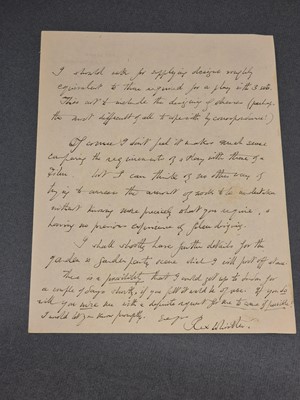 I should ask for supplying designs roughly
equivalent to those required for a play with 3 sets.
This not to include the designing of dresses (perhaps
the most difficult of all to operate by correspondence!)
Of course I don't feel it makes much sense
comparing the requirements of a play with those of a
film. But I can think of no other way of
trying to assess the amount of work to be undertaken
without knowing more precisely what you require, &
having no previous experience of film designing.
I shall shortly have further details for the
garden & garden party scene which I will post off at once
There is a possibility that I could get up to London for
a couple of days shortly, if you felt it would be of use. If you do
will you wire me with a definite request for me to come if possible
I would let you know promptly.
Rex Whistler.